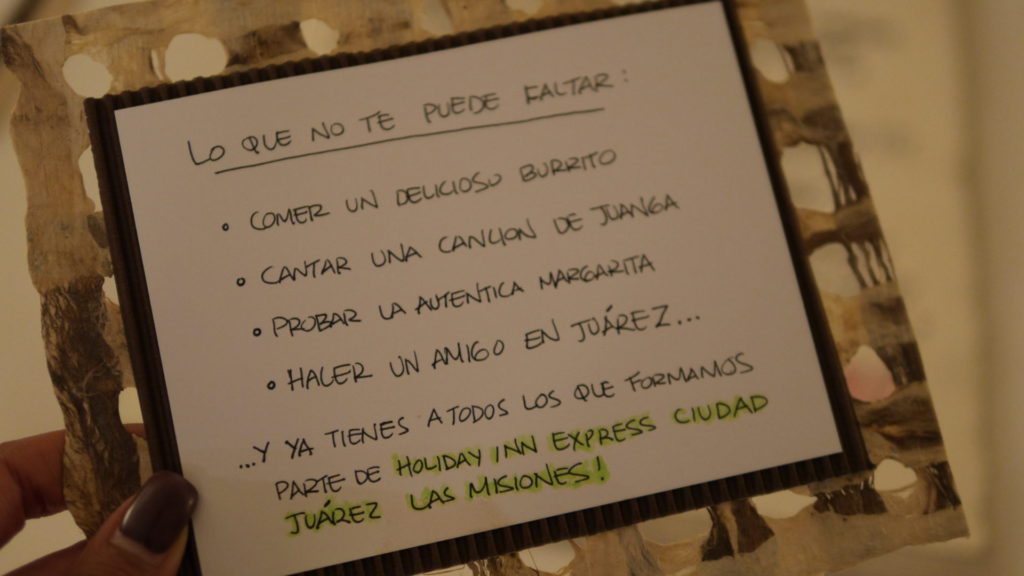 LO QUE NO TE PUEDE FALTAR:
• COMER UN DELICIOSO BURRITO
• CANTAR UNA CANCION DE JUANGA
• PROBAR LA AUTENTICA MARGARITA
• HACER UN AMIGO EN JUÁREZ...
...Y YA TIENES A TODOS LOS QUE FORMAMOS
PARTE DE HOLIDAY INN EXPRESS CIUDAD
JUÁREZ LAS MISIONES!